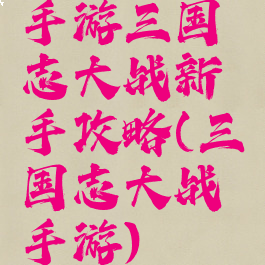 手游三国
志大战新
手攻略(三
国志大战
手游)